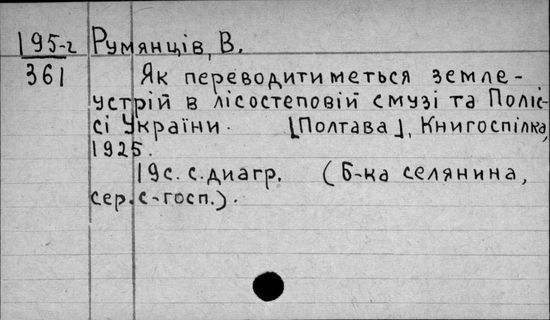 195-г Румянців, В.
361 Як переводитиметься земле-
устрій в лісостеповій смузі та Поліс-
сі України. [Полтава], Книгоспілка,
1925.
19с. с.диагр. (Б-ка селянина,
сер.с-госп.).